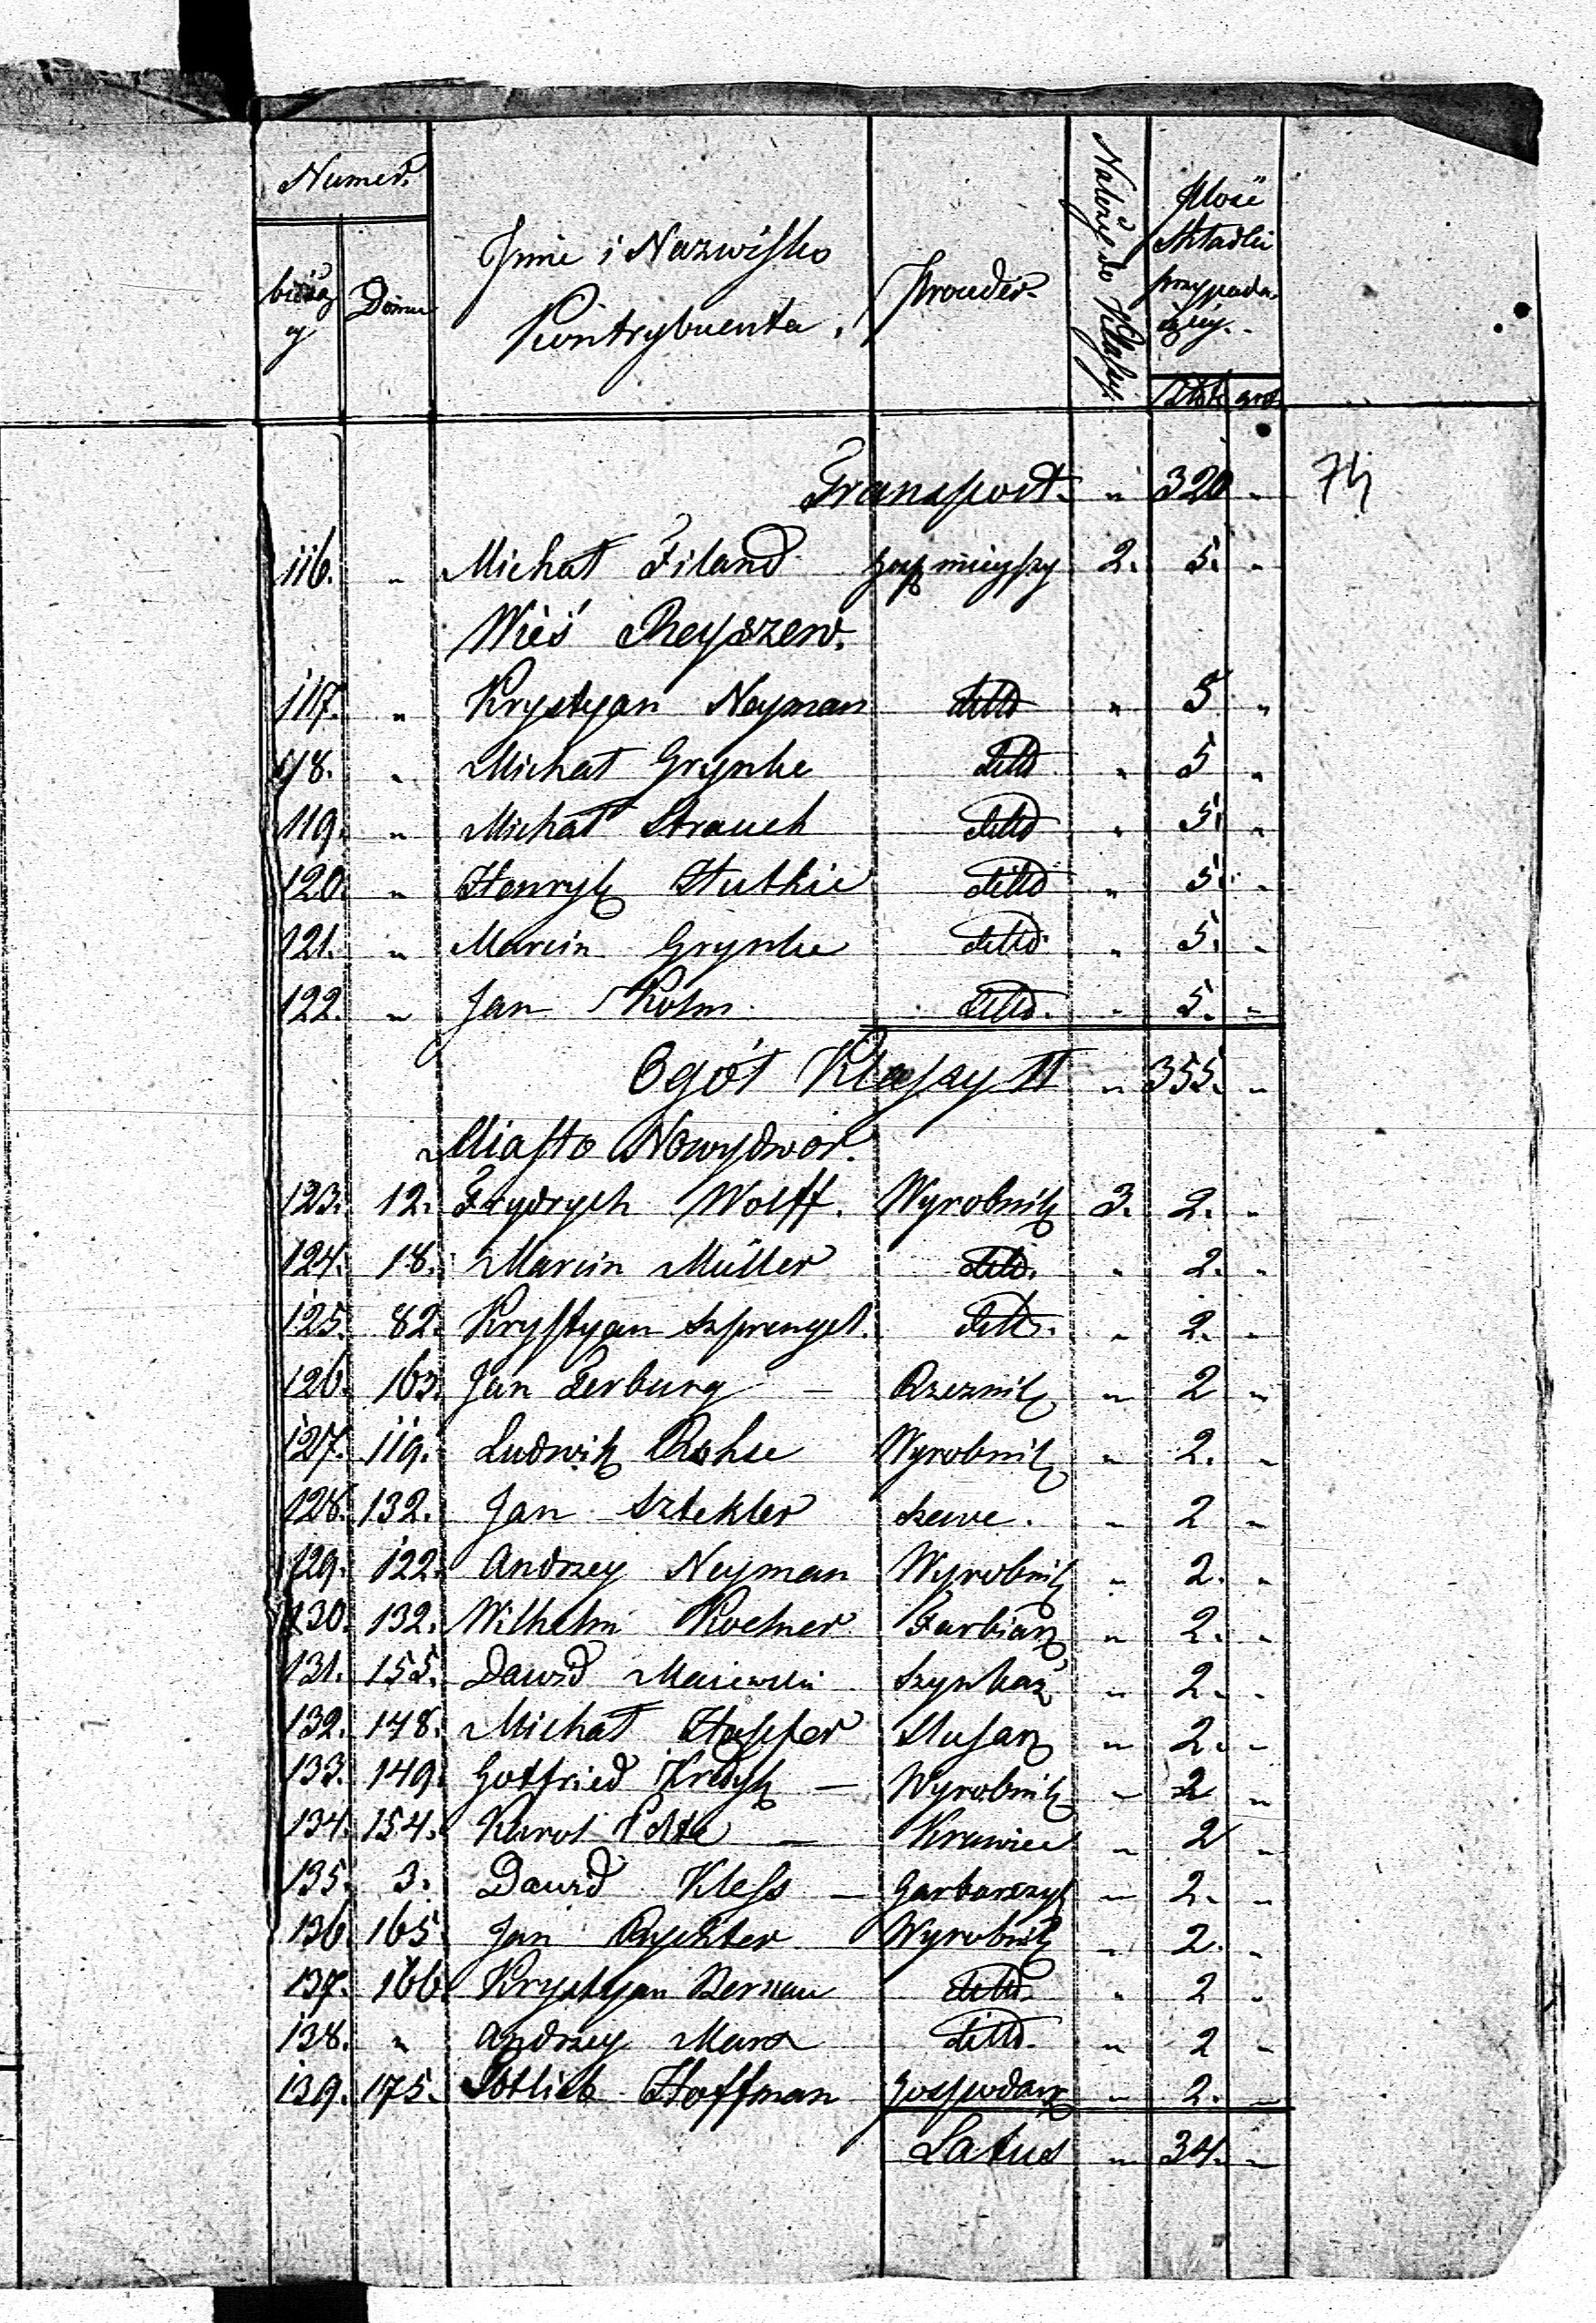 Numer.
bieżący Domu
Imie i Nazwisko
Kontrybuenta.
Proceder.
Należy do Klassy.
Ilość
Składki
przypada-
iącéy.
Złot. gro.
Transport. „ 320 „
116. „ Michał Filand gosp mieyszy 2. 5. „
Wieś Reyszew.
117. „ Krystyan Neyman ditto „ 5 „
118. „ Michał Grynke ditto „ 5 „
119. „ Michał Strauch ditto „ 5. „
120. „ Henryk Hutkie ditto „ 5. „
121. „ Marcin Grynke ditto „ 5. „
122. „ Jan Kolm. ditto. „ 5. „
Ogół Klassy II „ 355. „
Miasto Nowydwor.
123. 12. Frydrych Wolff. Wyrobnik 3. 2. „
124. 18. Marcin Müller ditto. „ 2. „
125. 82. Krystyan Szprengel. ditto. „ 2. „
126. 163. Jan Ferburg — Rzeznik „ 2 „
127. 119. Ludwik Rohse Wyrobnik „ 2. „
128. 132. Jan Sztekler Szewc. „ 2 „
129. 122. Andrzey Neyman Wyrobnik „ 2. „
130. 132. Wilhelm Koelner Farbiarz „ 2. „
131. 155. Dawid Maiewski Szynkarz „ 2. „
132. 148. Michał Hopfer Slusarz „ 2. „
133. 149. Gotfried Kredyk — Wyrobnik „ 2 „
134. 154. Karol — Krawiec „ 2 „
135. 3. Dawid Kless — Garbarczyk „ 2. „
136. 165. Jan Rychter Wyrobnik „ 2. „
137. 166. Krystyan Bernau ditto. „ 2 „
138. „ Andrzey Marx ditto. „ 2 „
139. 175. Gotlieb Hoffman Gospodarz „ 2. „
Latus „ 34. „